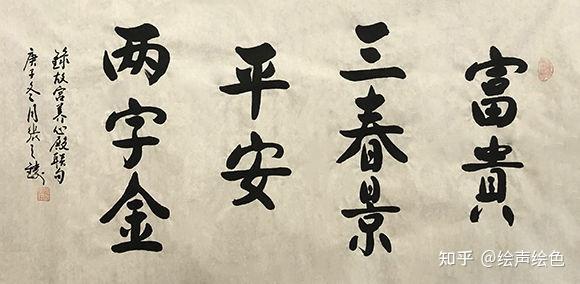 富貴
三春景
平安
两字金
錄故宫养心殿联句
庚子冬月张之
知乎 @绘声绘色